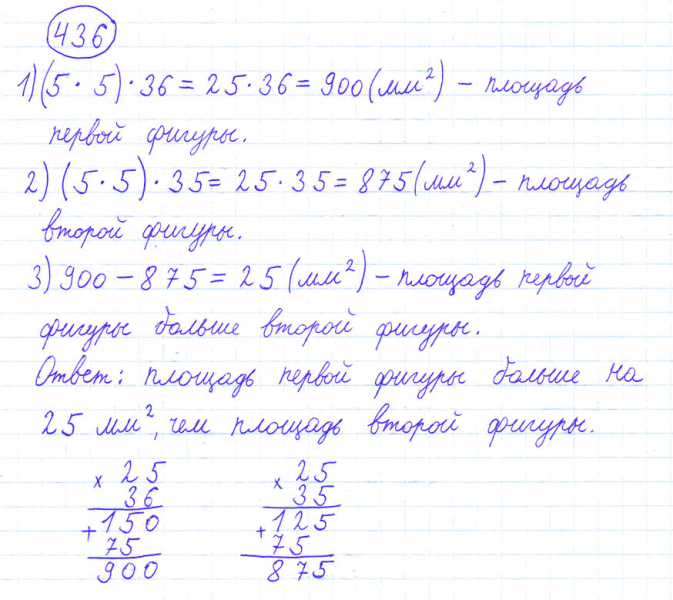 436
1) (5 · 5) · 36 = 25 · 36 = 900 (мм²) – площадь
первой фигуры.
2) (5 · 5) · 35 = 25 · 35 = 875 (мм²) – площадь
второй фигуры.
3) 900 – 875 = 25 (мм²) – площадь первой
фигуры больше второй фигуры.
Ответ: площадь первой фигуры больше на
25 мм², чем площадь второй фигуры.
× 25 × 25
36 35
+ 150 + 125
75 75
900 875